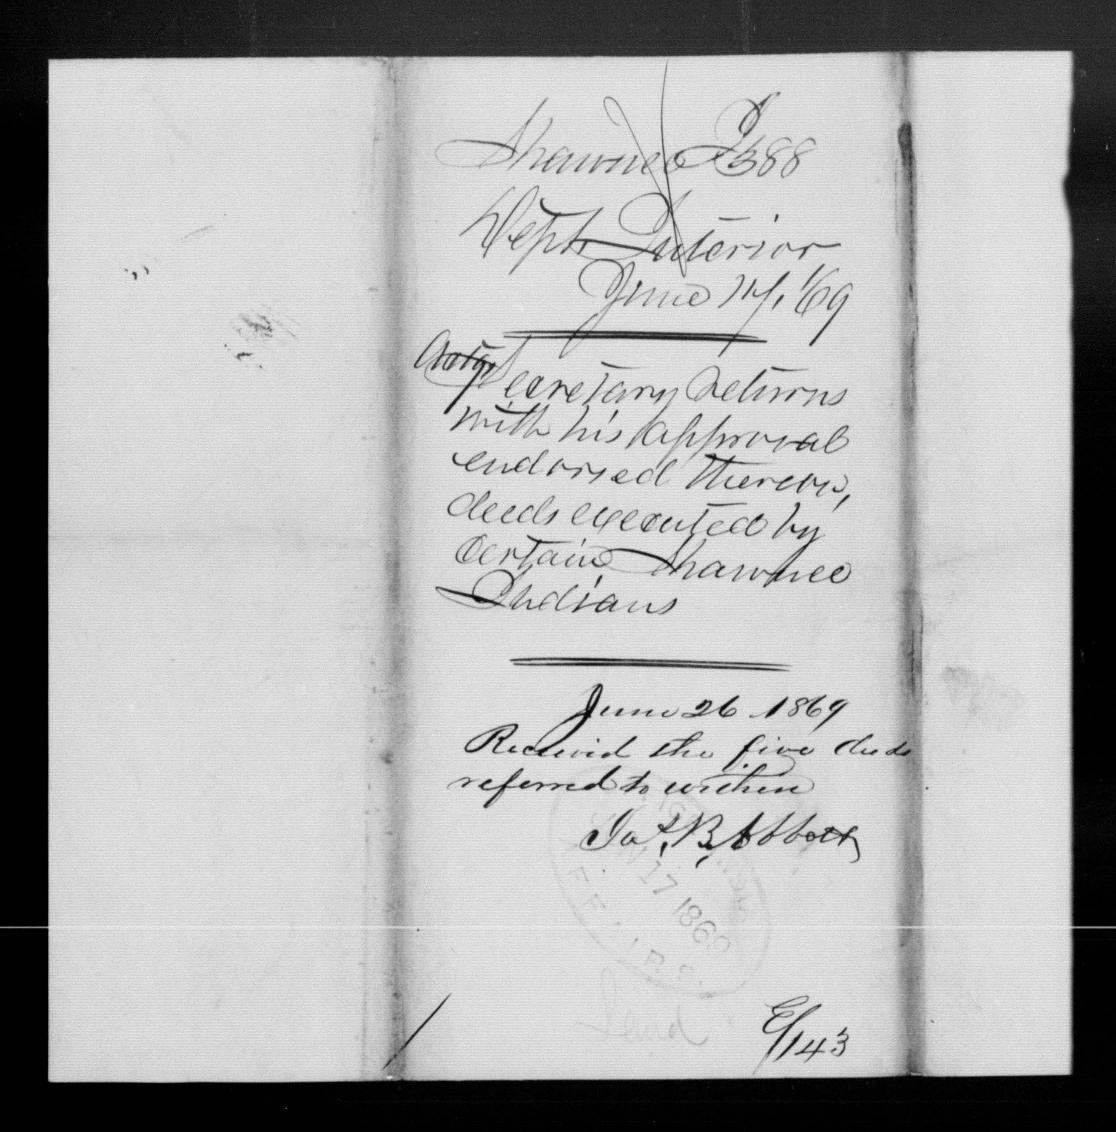 Shawnee I 388
Dept. Interior
June 17, '69
Acting Secretary returns
with his approval
endorsed thereon,
deeds executed by
certain Shawnee
Indians
June 26 1869
Received the five deeds
referred to within
Jas. B. Abbott
17 1869
Land
E/143